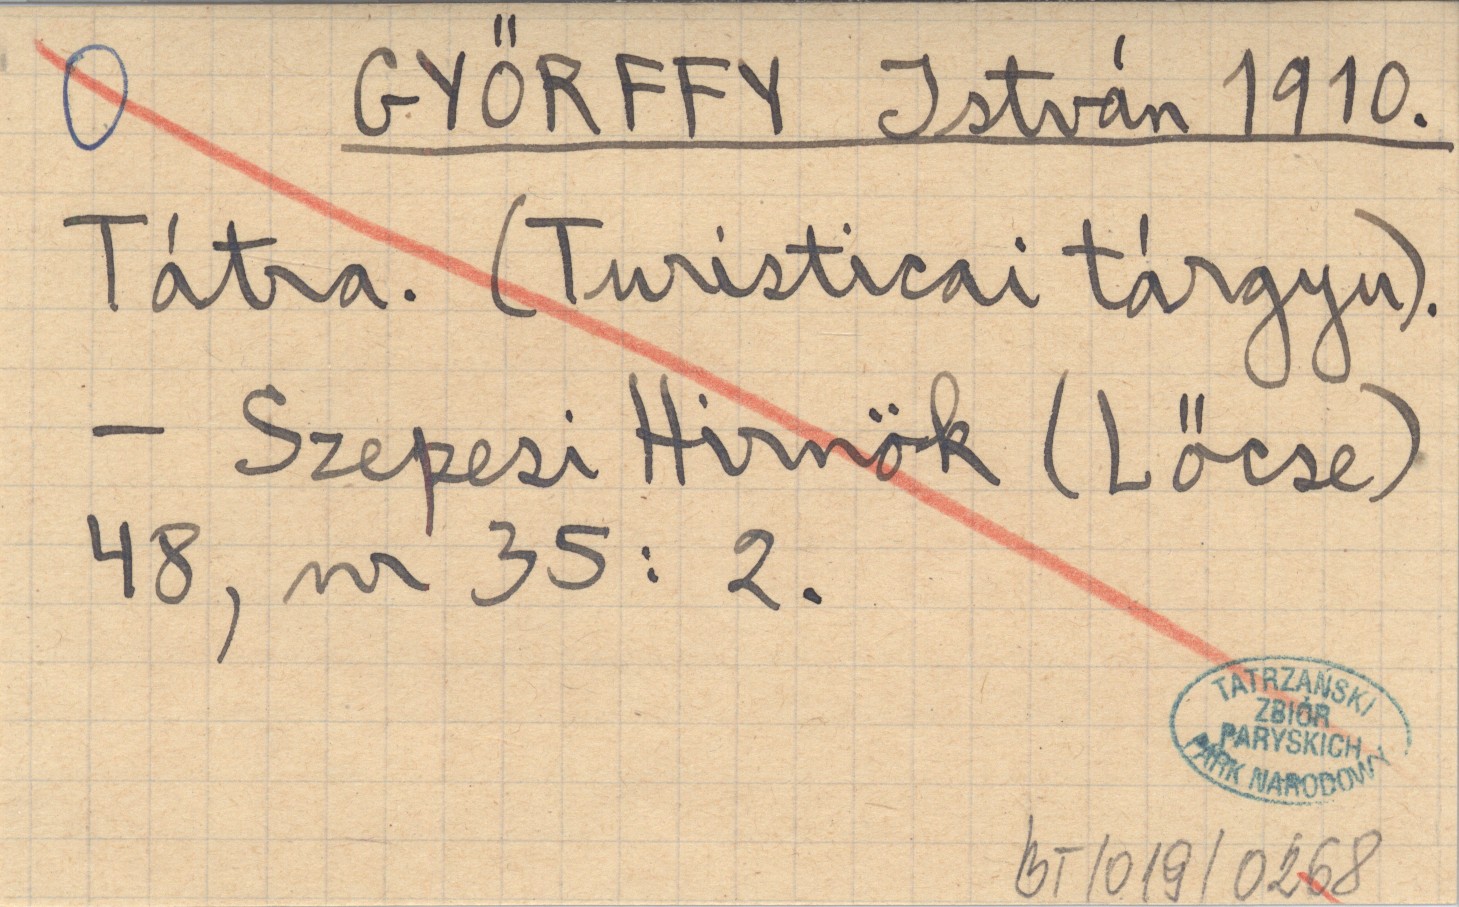 0 GYŐRFFY István 1910.
Tátra. (Turisticai tárgyu).
– Szepesi Hirnök (Lőcse)
48, nr 35: 2.
TATRZAŃSKI
ZBIÓR
PARYSKICH
PARK NARODOWY
BT/019/0268